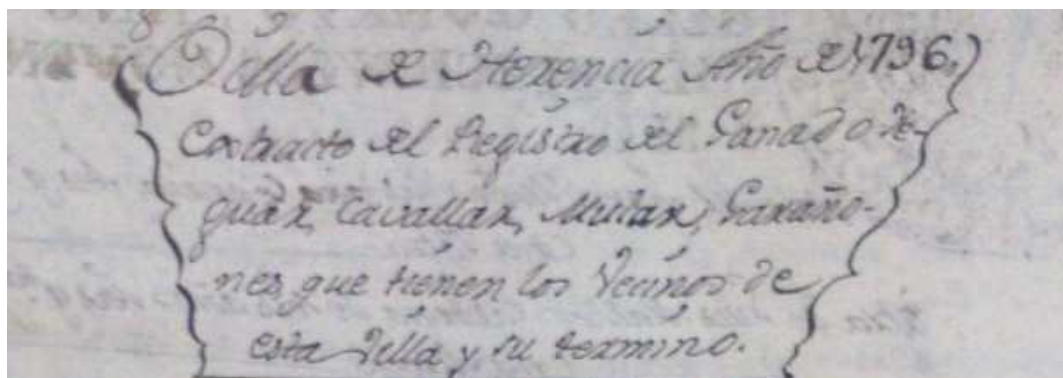 Villa de Herencia Año de 1796.
Extracto del Registro del Ganado Ye-
guar, Cavallar, Mular, Garaño-
nes que tienen los Vecinos de
esta Villa y su termino.